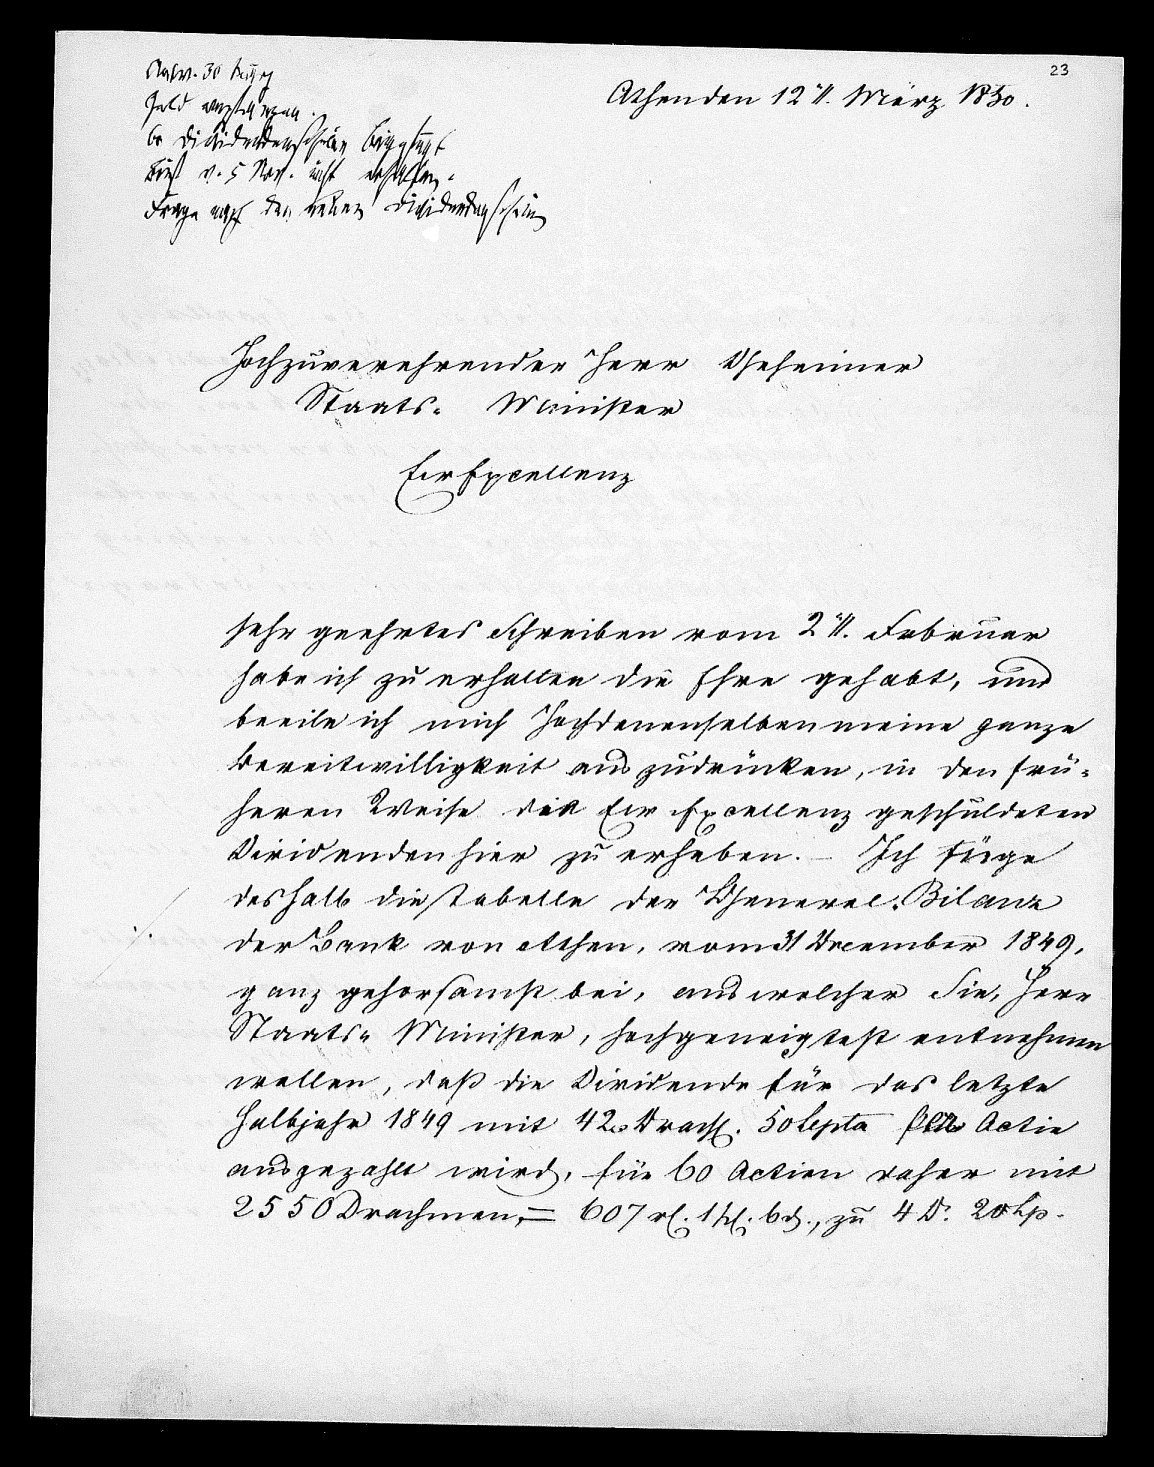 23
Athen den 12tt. März 1850.
Antw. 30
Geld
60 Dividendenscheine beigefügt
Brief v. 5 Nov. nicht erhalten.
Frage nach den neuen Dividendenscheinen
Hochzuverehrender Herr Geheimer
Staats- Minister
Eur Excellenz
sehr geehrtes Schreiben vom 2tt. Februar
habe ich zu erhalten die Ehre gehabt, und
beeile ich mich Hochdenenselben meine ganze
Bereitwilligkeit auszudrücken, in den frü-
heren Weise die Eur Excellenz geschuldeten
Dividenden hier zu erheben. – Ich füge
deshalb die Tabelle der General-Bilanz
der Bank von Athen, vom 31 December 1849,
ganz gehorsamst bei, aus welcher Sie, Herr
Staats- Minister, hochgeneigtest entnehmen
wollen, daß die Dividende für das letzte
Halbjahr 1849 mit 42 Drach. 50 Lepta pro Actie
ausgezahlt wird, für 60 Actien daher mit
2550 Drachmen, = 607 rl. 1 sl. 6 d., zu 4 D. 20 Lp.